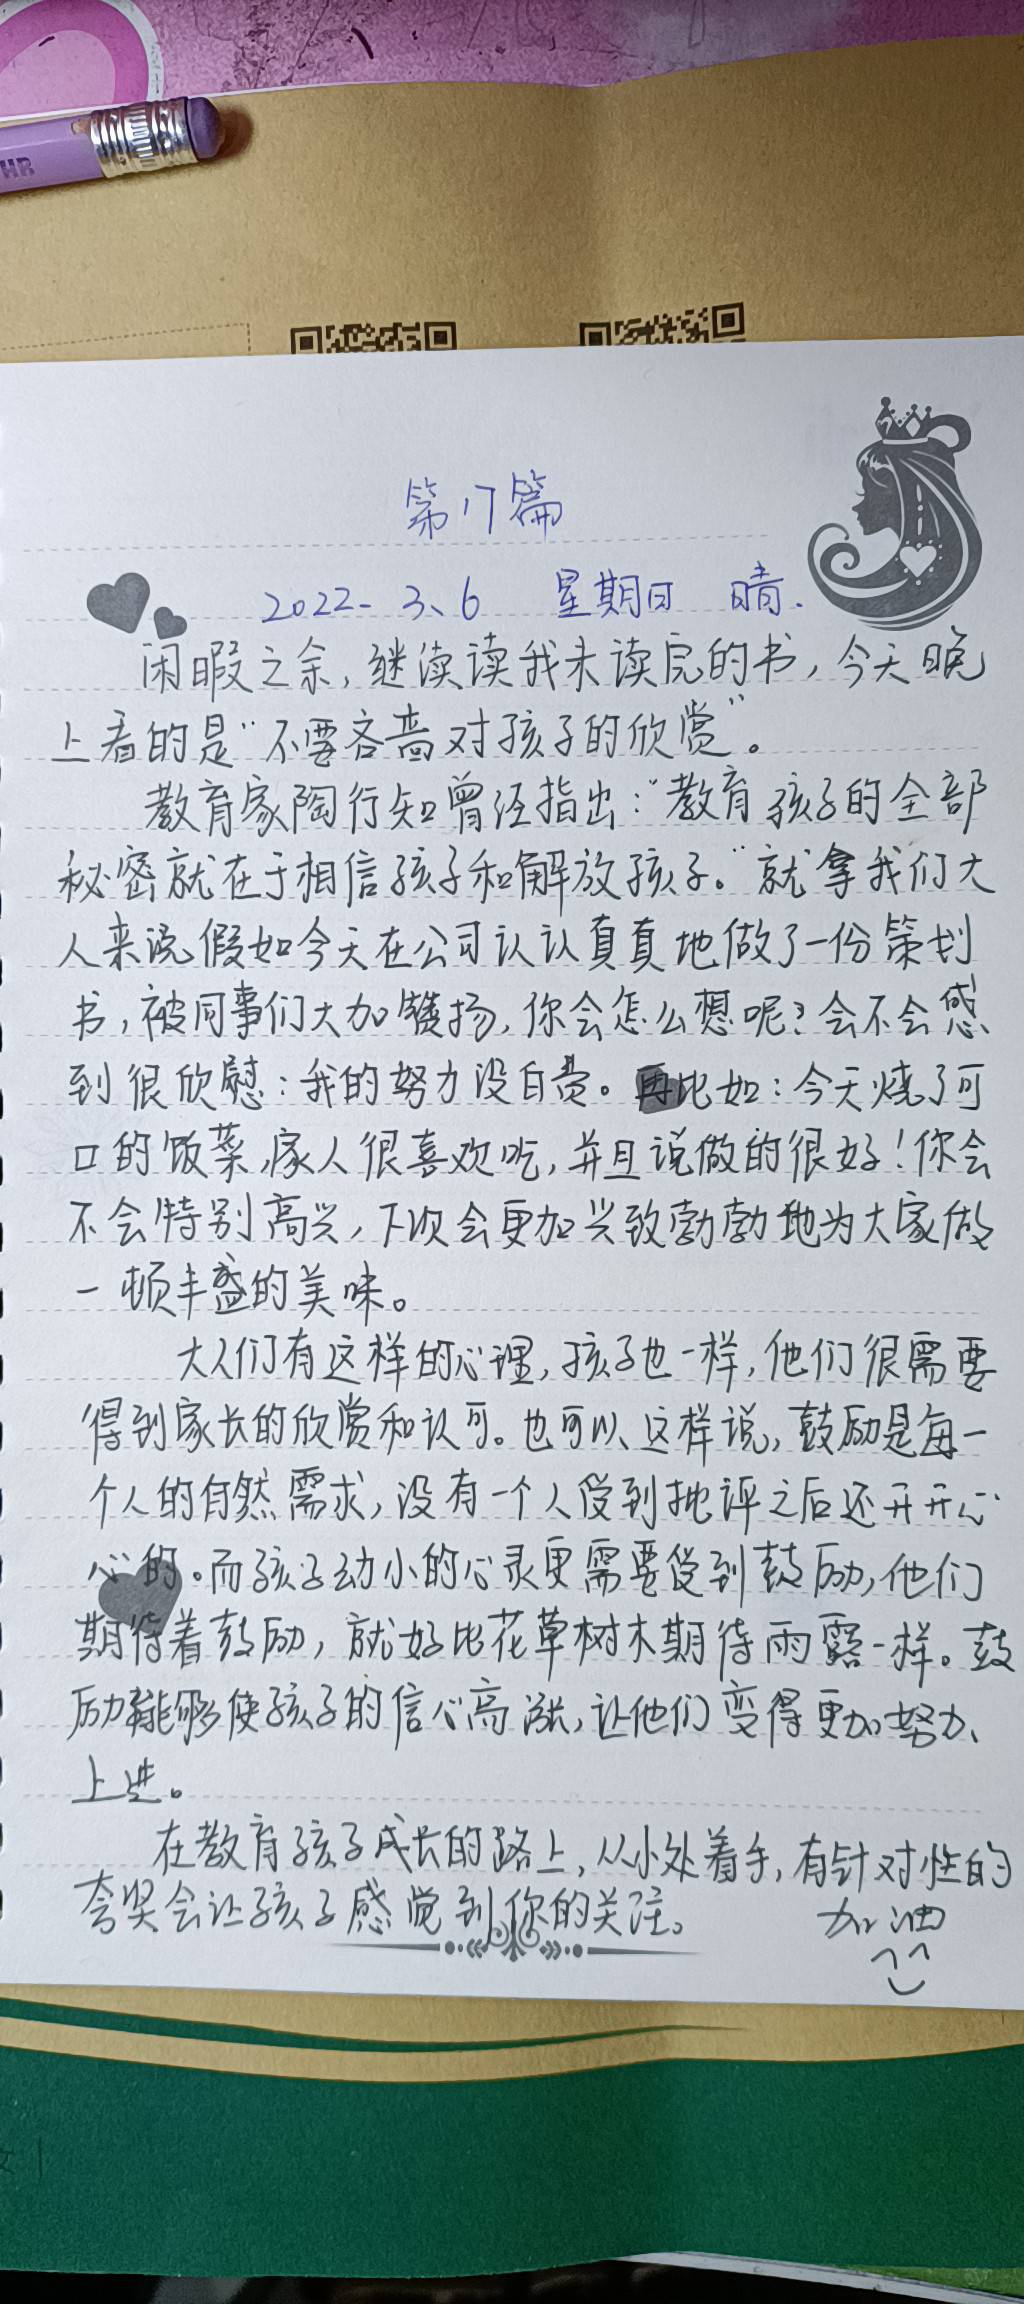 HB
第17篇
2022.3.6 星期日 晴.
闲暇之余,继续读我未读完的书,今天晚
上看的是“不要吝啬对孩子的欣赏”。
教育家陶行知曾经指出:“教育孩子的全部
秘密就在于相信孩子和解放孩子。”就拿我们大
人来说,假如今天在公司认认真真地做了一份策划
书,被同事们大加赞扬,你会怎么想呢?会不会感
到很欣慰:我的努力没白费。再比如:今天烧了可
口的饭菜,家人很喜欢吃,并且说做的很好!你会
不会特别高兴,下次会更加兴致勃勃地为大家做
一顿丰盛的美味。
大人们有这样的心理,孩子也一样,他们很需要
得到家长的欣赏和认可。也可以这样说,鼓励是每一
个人的自然需求,没有一个人受到批评之后还开开心
心的。而孩子幼小的心灵更需要受到鼓励,他们
期待着鼓励,就好比花草树木期待雨露一样。鼓
励能够使孩子的信心高涨,让他们变得更加努力、
上进。
在教育孩子成长的路上,从小处着手,有针对性的
夸奖会让孩子感觉到你的关注。
加油